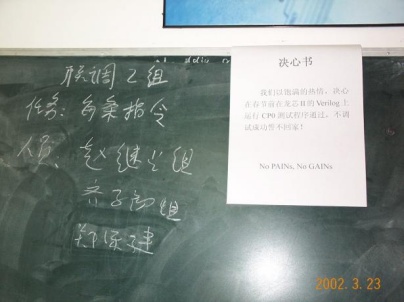 联调乙组
任务: 每条指令
人员: 赵继业组
郑保建
决心书
我们以饱满的热情，决心
在春节前在龙芯II的Verilog上
运行CP0测试程序通过，不调
试成功誓不回家！
No PAINs, No GAINs
2002.3.23